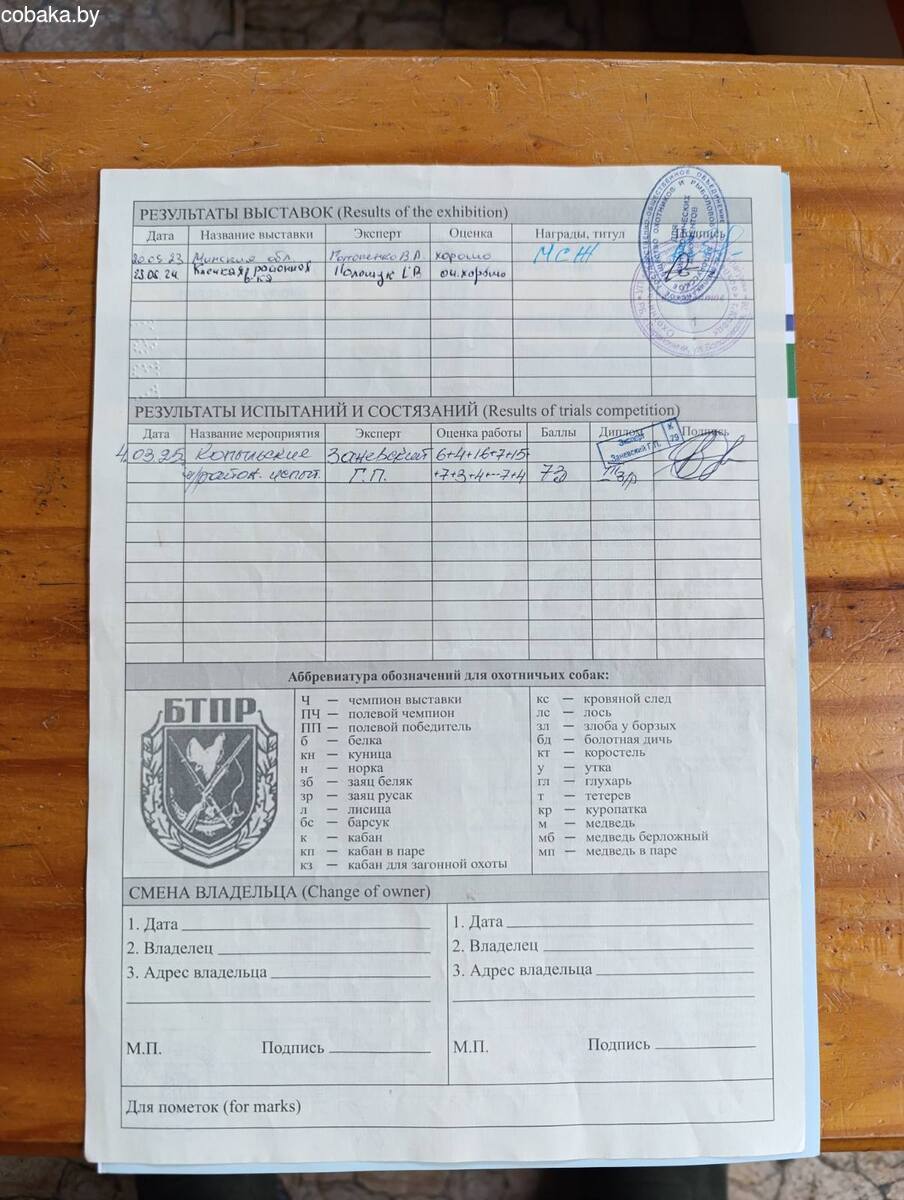 cobaka.by
РЕЗУЛЬТАТЫ ВЫСТАВОК (Results of the exhibition)
Дата Название выставки Эксперт Оценка Награды, титул Подпись
20.05.23 Минская обл. Потопенко В.А. хорошо МСЖ
23.06.24 районная в-ка Полощук оч.хорошо
РЕЗУЛЬТАТЫ ИСПЫТАНИЙ И СОСТЯЗАНИЙ (Results of trials competition)
Дата Название мероприятия Эксперт Оценка работы Баллы Диплом Подпись
Эксперт К
Заневский Г.П. 29
03.25 Копыльские Заневский 6+4+16+7+15
район. испыт. Г.П. +7+3+4+-7+4 73
Аббревиатура обозначений для охотничьих собак:
БТПР
Ч — чемпион выставки
ПЧ — полевой чемпион
ПП — полевой победитель
б — белка
кн — куница
н — норка
зб — заяц беляк
зр — заяц русак
л — лисица
бс — барсук
к — кабан
кп — кабан в паре
кз — кабан для загонной охоты
кс — кровяной след
лс — лось
зл — злоба у борзых
бд — болотная дичь
кт — коростель
у — утка
гл — глухарь
т — тетерев
кр — куропатка
м — медведь
мб — медведь берложный
мп — медведь в паре
СМЕНА ВЛАДЕЛЬЦА (Change of owner)
1. Дата
2. Владелец
3. Адрес владельца
М.П. Подпись
1. Дата
2. Владелец
3. Адрес владельца
М.П. Подпись
Для пометок (for marks)